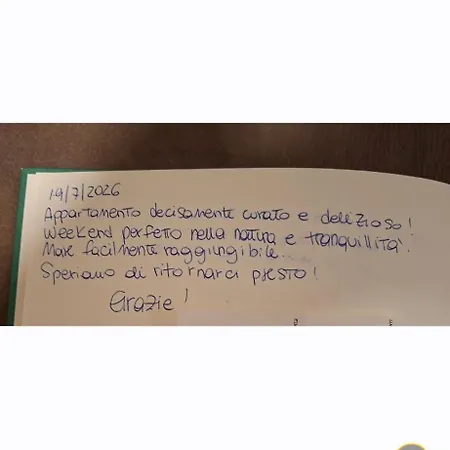 19/7/2026
Appartamento decisamente curato e delizioso!
Weekend perfetto nella natura e tranquillità.
Mare facilmente raggiungibile...
Speriamo di ritornarci presto!
Grazie!